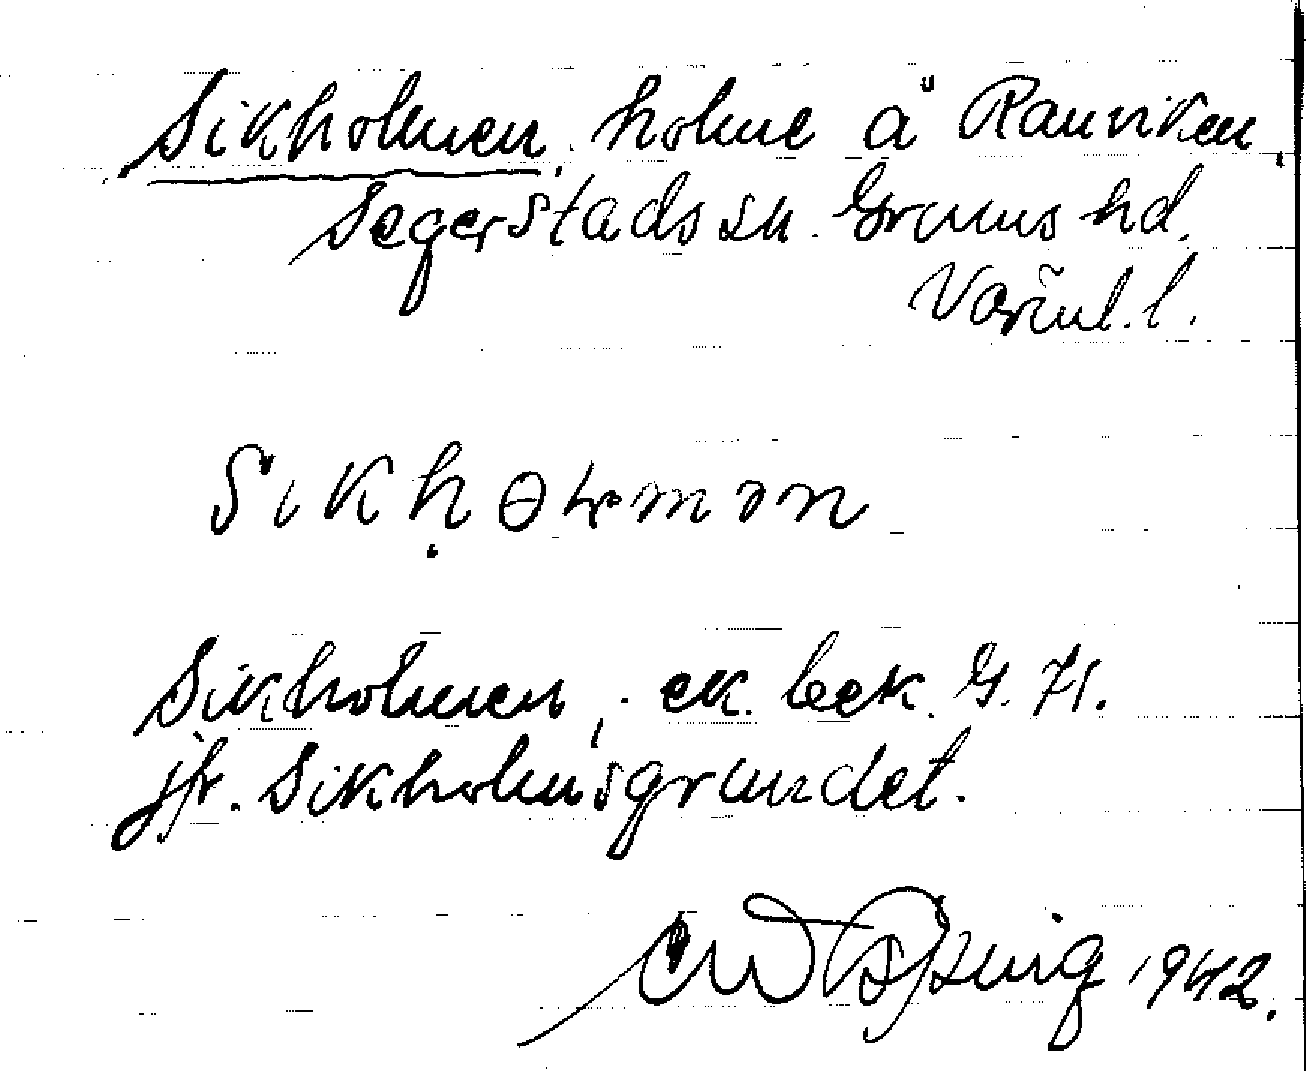 Sikholmen, holme å Ranviken,
Segerstads sn. Grums hd.
Värml. l.
Sikhɵɫmɘn
Sikholmen, ek. bek. G. K.
jfr. Sikholmsgrundet.
1942.